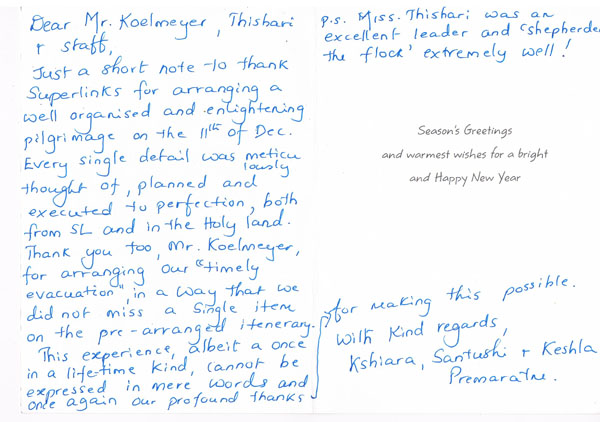 Dear Mr. Koelmeyer, Thishari
+ staff,
Just a short note to thank
Superlinks for arranging a
well organised and enlightening
pilgrimage on the 11th of Dec.
Every single detail was meticu
lously
thought of, planned and
executed to perfection, both
from SL and in the Holy land.
Thank you too, Mr. Koelmeyer,
for arranging our "timely
evacuation", in a way that we
did not miss a single item
on the pre-arranged itenerary.
This experience, albeit a once
in a life-time kind, cannot be
expressed in mere words and
once again our profound thanks
for making this possible.
With kind regards,
Kshiara, Santushi + Keshla
Premaratne.
p.s. Miss. Thishari was an
excellent leader and 'shepherded
the flock' extremely well!
Season's Greetings
and warmest wishes for a bright
and Happy New Year